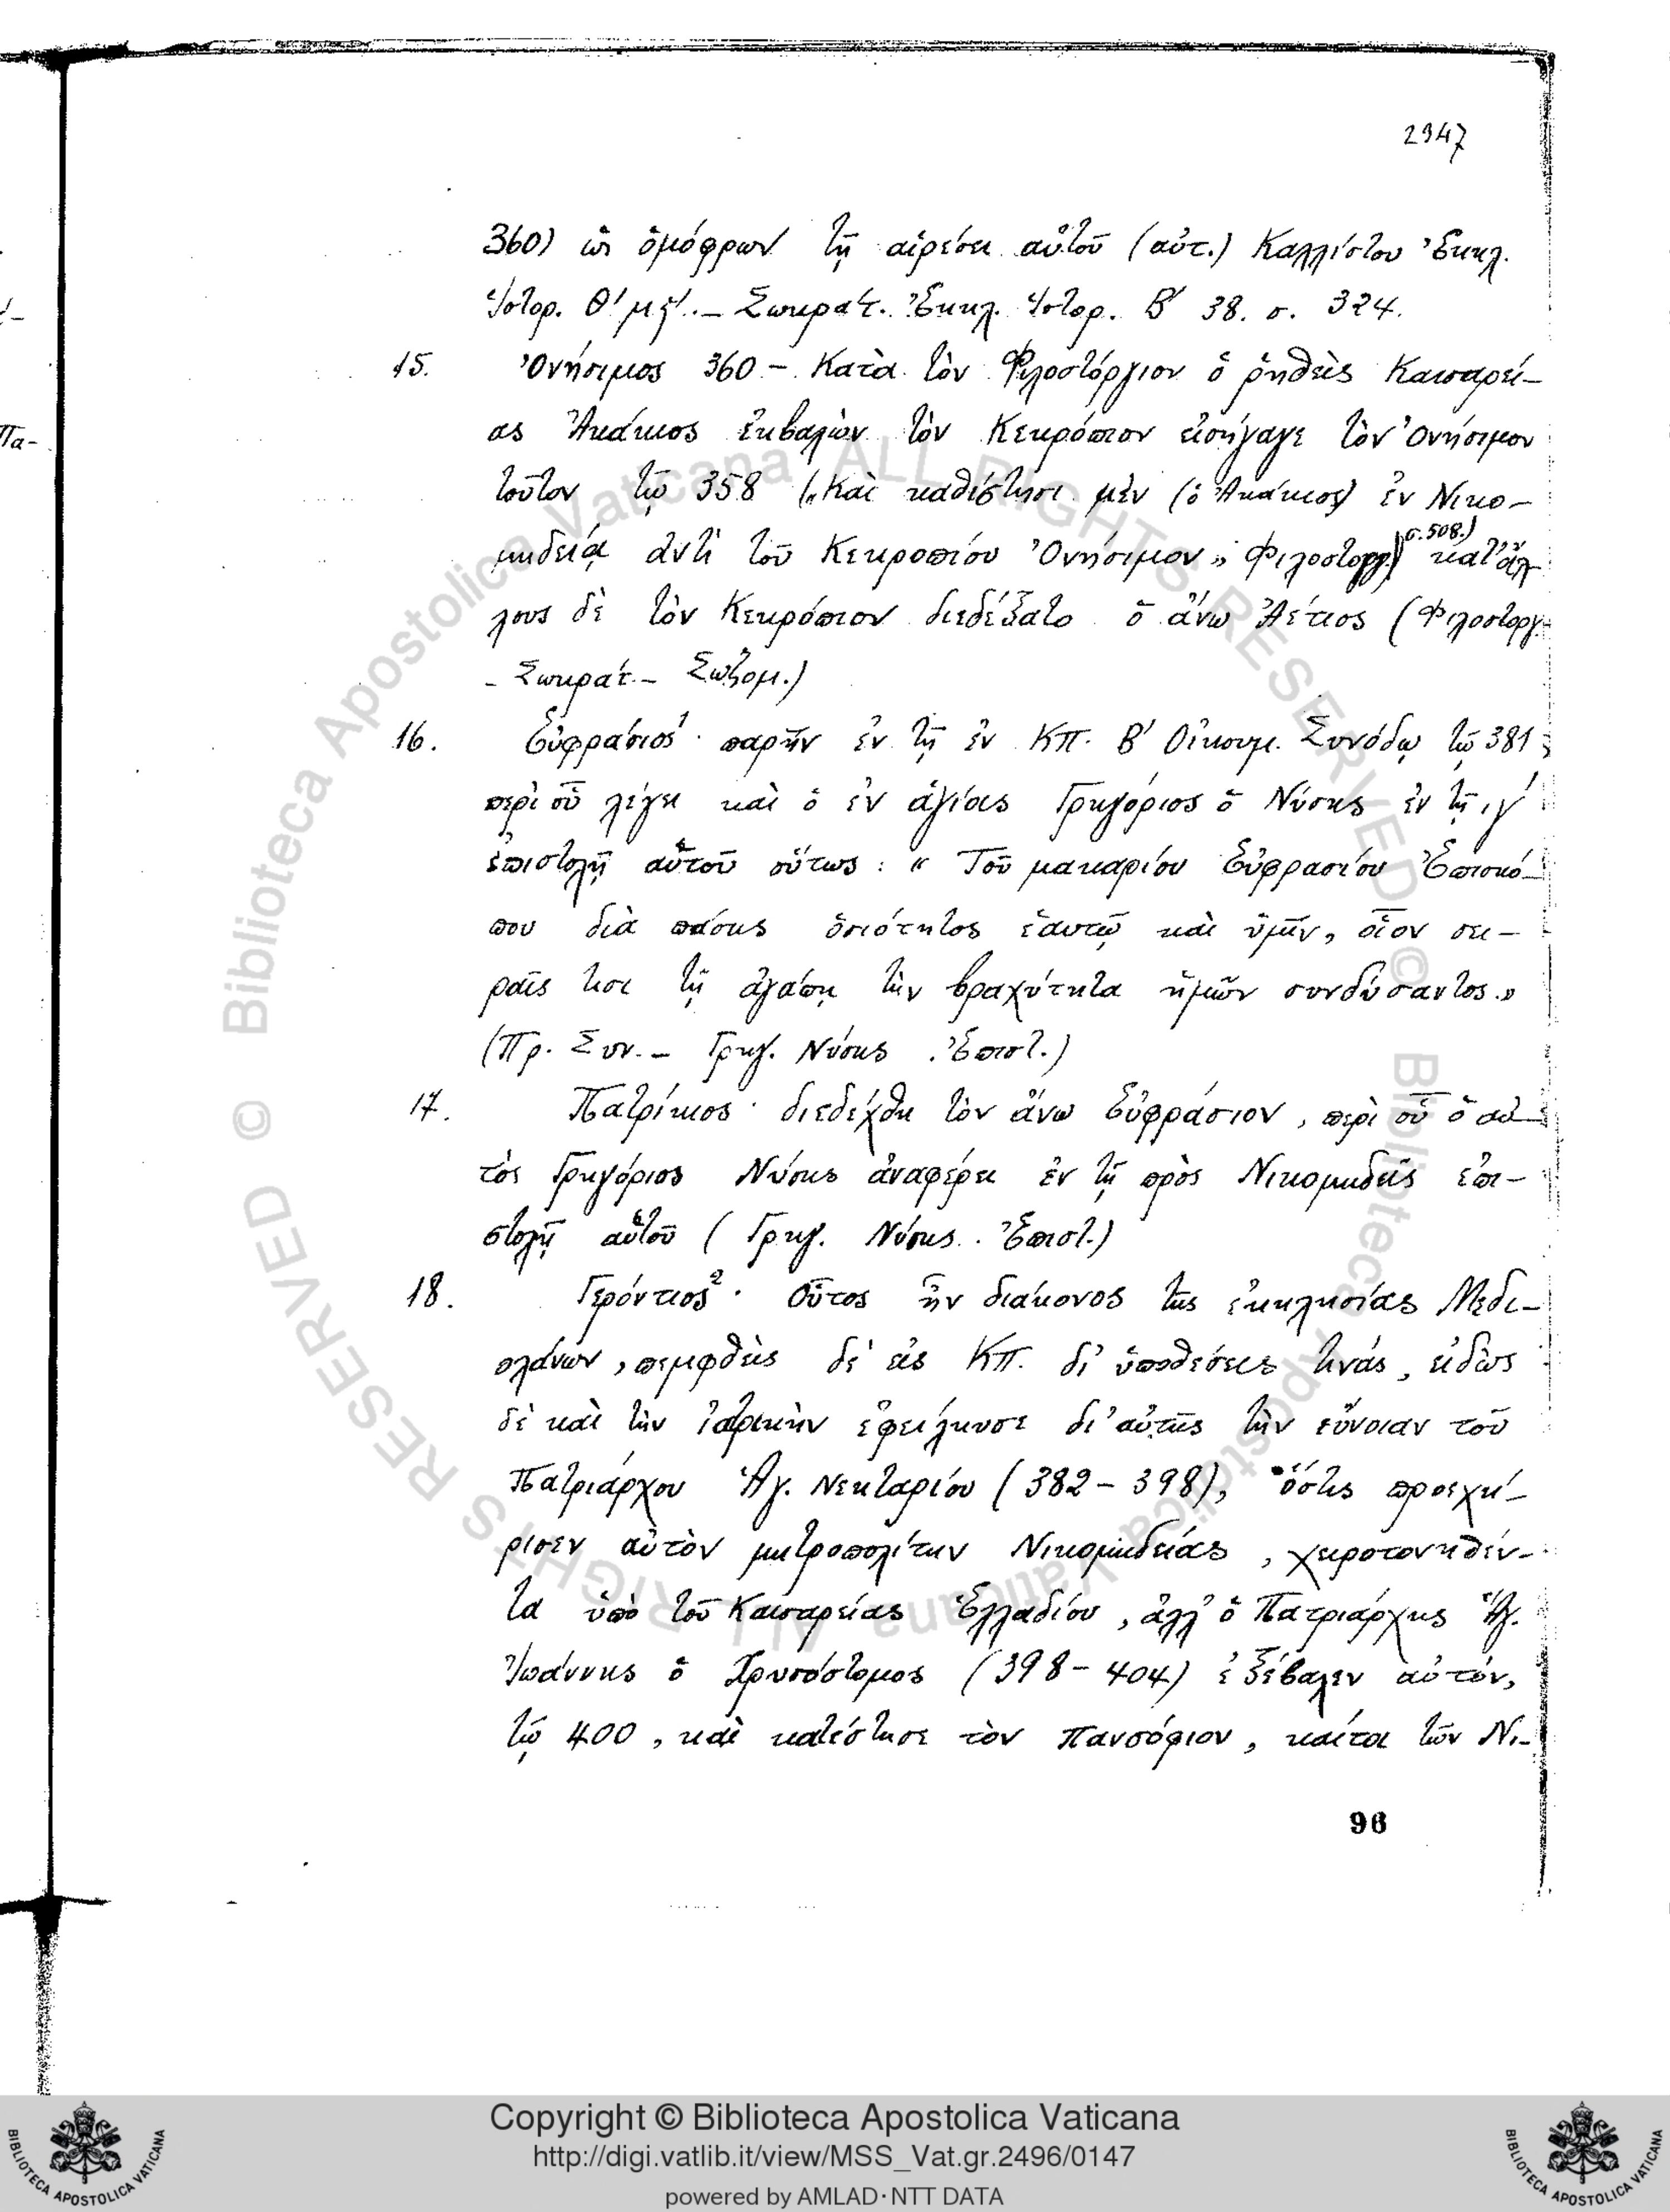 2947
360) ὡς ὁμόφρων τῇ αἱρέσει αὐτοῦ (αὐτ.) Καλλίστου Ἐκκλ.
Ἱστορ. Θ′ μϛ′. — Σωκράτ. Ἐκκλ. Ἱστορ. Β′ 38. σ. 324.
15. Ὀνήσιμος 360 — Κατὰ τὸν Φιλοστόργιον ὁ ῥηθεὶς Καισαρεί-
ας Ἀκάκιος ἐκβαλὼν τὸν Κεκρόπιον εἰσήγαγε τὸν Ὀνήσιμον
τοῦτον τῷ 358 („Καὶ καθίστησι μὲν (ὁ Ἀκάκιος) ἐν Νικο-
μηδείᾳ ἀντὶ τοῦ Κεκροπίου Ὀνήσιμον” Φιλοστοργ. σ. 508.) κατ' ἄλ-
λους δὲ τὸν Κεκρόπιον διεδέξατο ὁ ἄνω Ἀέτιος (Φιλοστοργ.
— Σωκράτ. — Σωζομ.)
16. Εὐφράσιος¹· παρῆν ἐν τῇ ἐν ΚΠ. Β′ Οἰκουμ. Συνόδῳ τῷ 381
περὶ οὗ λέγει καὶ ὁ ἐν ἁγίοις Γρηγόριος ὁ Νύσης ἐν τῇ ιγ′
ἐπιστολῇ αὑτοῦ οὕτως: « Τοῦ μακαρίου Εὐφρασίου Ἐπισκό-
που διὰ πάσης ὁσιότητος ἑαυτῷ καὶ ὑμῖν, οἷον σει-
ραῖς τισι τῇ ἀγάπῃ τὴν βραχύτητα ἡμῶν συνδήσαντος.»
(Πρ. Συν. — Γρηγ. Νύσης. Ἐπιστ.)
17. Πατρίκιος· διεδέχθη τὸν ἄνω Εὐφράσιον, περὶ οὗ ὁ αὐ-
τὸς Γρηγόριος Νύσης ἀναφέρει ἐν τῇ πρὸς Νικομηδεῖς ἐπι-
στολῇ αὑτοῦ (Γρηγ. Νύσης. Ἐπιστ.)
18. Γερόντιος²· Οὗτος ἦν διάκονος τῆς ἐκκλησίας Μεδι-
ολάνων, πεμφθεὶς δὲ εἰς ΚΠ. δι' ὑποθέσεις τινάς, εἰδὼς
δὲ καὶ τὴν ἰατρικὴν ἐφείλκυσε δι' αὐτῆς τὴν εὔνοιαν τοῦ
Πατριάρχου Ἁγ. Νεκταρίου (382 – 398), ὅστις προεχεί-
ρισεν αὐτὸν μητροπολίτην Νικομηδείας, χειροτονηθέν-
τα ὑπὸ τοῦ Καισαρείας Ἑλλαδίου, ἀλλ' ὁ Πατριάρχης Ἅγ.
Ἰωάννης ὁ Χρυσόστομος (398 – 404) ἐξέβαλεν αὐτόν,
τῷ 400, καὶ κατέστησε τὸν Πανσόφιον, καίτοι τῶν Νι-
96
Copyright © Biblioteca Apostolica Vaticana
http://digi.vatlib.it/view/MSS_Vat.gr.2496/0147
powered by AMLAD·NTT DATA